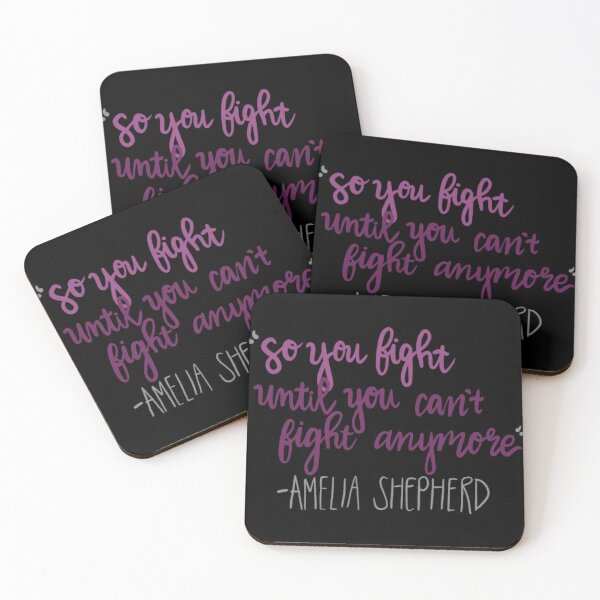 so you fight
until you can't
fight anymore
"so you fight
until you can't
fight anymore"
RD
"so you fight
until you can't
fight anymore
-AMELIA SHE
"so you fight
until you can't
fight anymore"
-AMELIA SHEPHERD